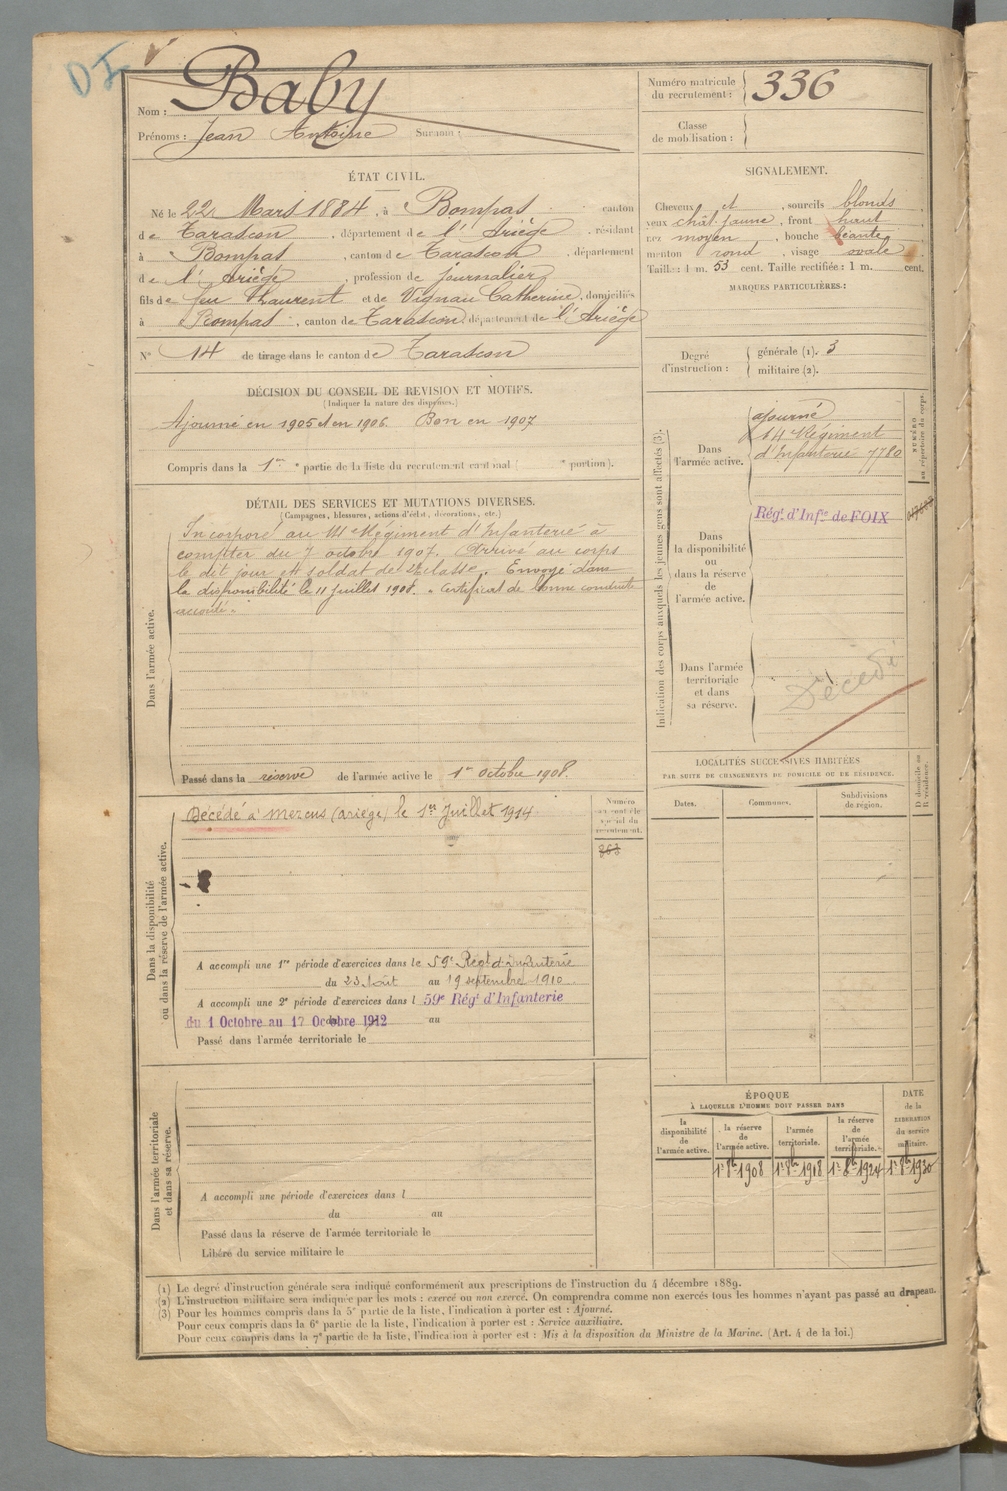 Nom : Baby
Prénoms : Jean Antoine Surnom :
Numéro matricule du recrutement : 336
Classe de mobilisation :
ÉTAT CIVIL.
Né le 22 Mars 1884, à Bompas canton
de Tarascon, département de l'Ariège, résidant
à Bompas, canton de Tarascon, département
de l'Ariège, profession de journalier,
fils de feu Laurent et de Vignau Catherine, domiciliés
à Bompas, canton de Tarascon, département de l'Ariège
N° 14 de tirage dans le canton de Tarascon
SIGNALEMENT.
Cheveux et , sourcils blonds
yeux chât. jaune, front haut
nez moyen, bouche béante
menton rond, visage ovale
Taille : 1 m. 53 cent. Taille rectifiée : 1 m. cent.
MARQUES PARTICULIÈRES :
Degré d'instruction :
générale (1). 3
militaire (2).
DÉCISION DU CONSEIL DE REVISION ET MOTIFS.
(Indiquer la nature des dispenses.)
Ajourné en 1905 et en 1906. Bon en 1907
Compris dans la 1re partie de la liste du recrutement cantonal ( e portion).
DÉTAIL DES SERVICES ET MUTATIONS DIVERSES.
(Campagnes, blessures, actions d'éclat, décorations, etc.)
Dans l'armée active.
Incorporé au 14e Régiment d'Infanterie à
compter du 7 octobre 1907. Arrivé au corps
le dit jour et soldat de 2e classe. Envoyé dans
la disponibilité le 11 Juillet 1908. Certificat de bonne conduite
accordé.
Passé dans la réserve de l'armée active le 1er octobre 1908.
Indication des corps auxquels les jeunes gens sont affectés (3).
NUMÉRO au répertoire du corps.
Dans l'armée active.
ajourné
14 Régiment
d'Infanterie 7780
Dans la disponibilité ou dans la réserve de l'armée active.
Régt d'Infie de FOIX
Dans l'armée territoriale et dans sa réserve.
Décédé
LOCALITÉS SUCCESSIVES HABITÉES
PAR SUITE DE CHANGEMENTS DE DOMICILE OU DE RÉSIDENCE.
Dates. Communes. Subdivisions de région. D domicile ou R résidence.
Dans la disponibilité ou dans la réserve de l'armée active.
Numéro au contrôle spécial du recrutement.
Décédé à Mercus (Ariège) le 1er Juillet 1914
A accompli une 1re période d'exercices dans le 59e Régt d'Infanterie
du 23 Août au 19 septembre 1910
A accompli une 2e période d'exercices dans l 59e Régt d'Infanterie
du 1 Octobre au 17 Octobre 1912 au
Passé dans l'armée territoriale le
ÉPOQUE
À LAQUELLE L'HOMME DOIT PASSER DANS
la disponibilité de l'armée active.
la réserve de l'armée active.
l'armée territoriale.
la réserve de l'armée territoriale.
DATE de la LIBÉRATION du service militaire.
1er 8bre 1908 1er 8bre 1918 1er 8bre 1924 1er 8bre 1930
Dans l'armée territoriale et dans sa réserve.
A accompli une période d'exercices dans l
du au
Passé dans la réserve de l'armée territoriale le
Libéré du service militaire le
(1) Le degré d'instruction générale sera indiqué conformément aux prescriptions de l'instruction du 4 décembre 1889.
(2) L'instruction militaire sera indiquée par les mots : exercé ou non exercé. On comprendra comme non exercés tous les hommes n'ayant pas passé au drapeau.
(3) Pour les hommes compris dans la 5e partie de la liste, l'indication à porter est : Ajourné.
Pour ceux compris dans la 6e partie de la liste, l'indication à porter est : Service auxiliaire.
Pour ceux compris dans la 7e partie de la liste, l'indication à porter est : Mis à la disposition du Ministre de la Marine. (Art. 4 de la loi.)